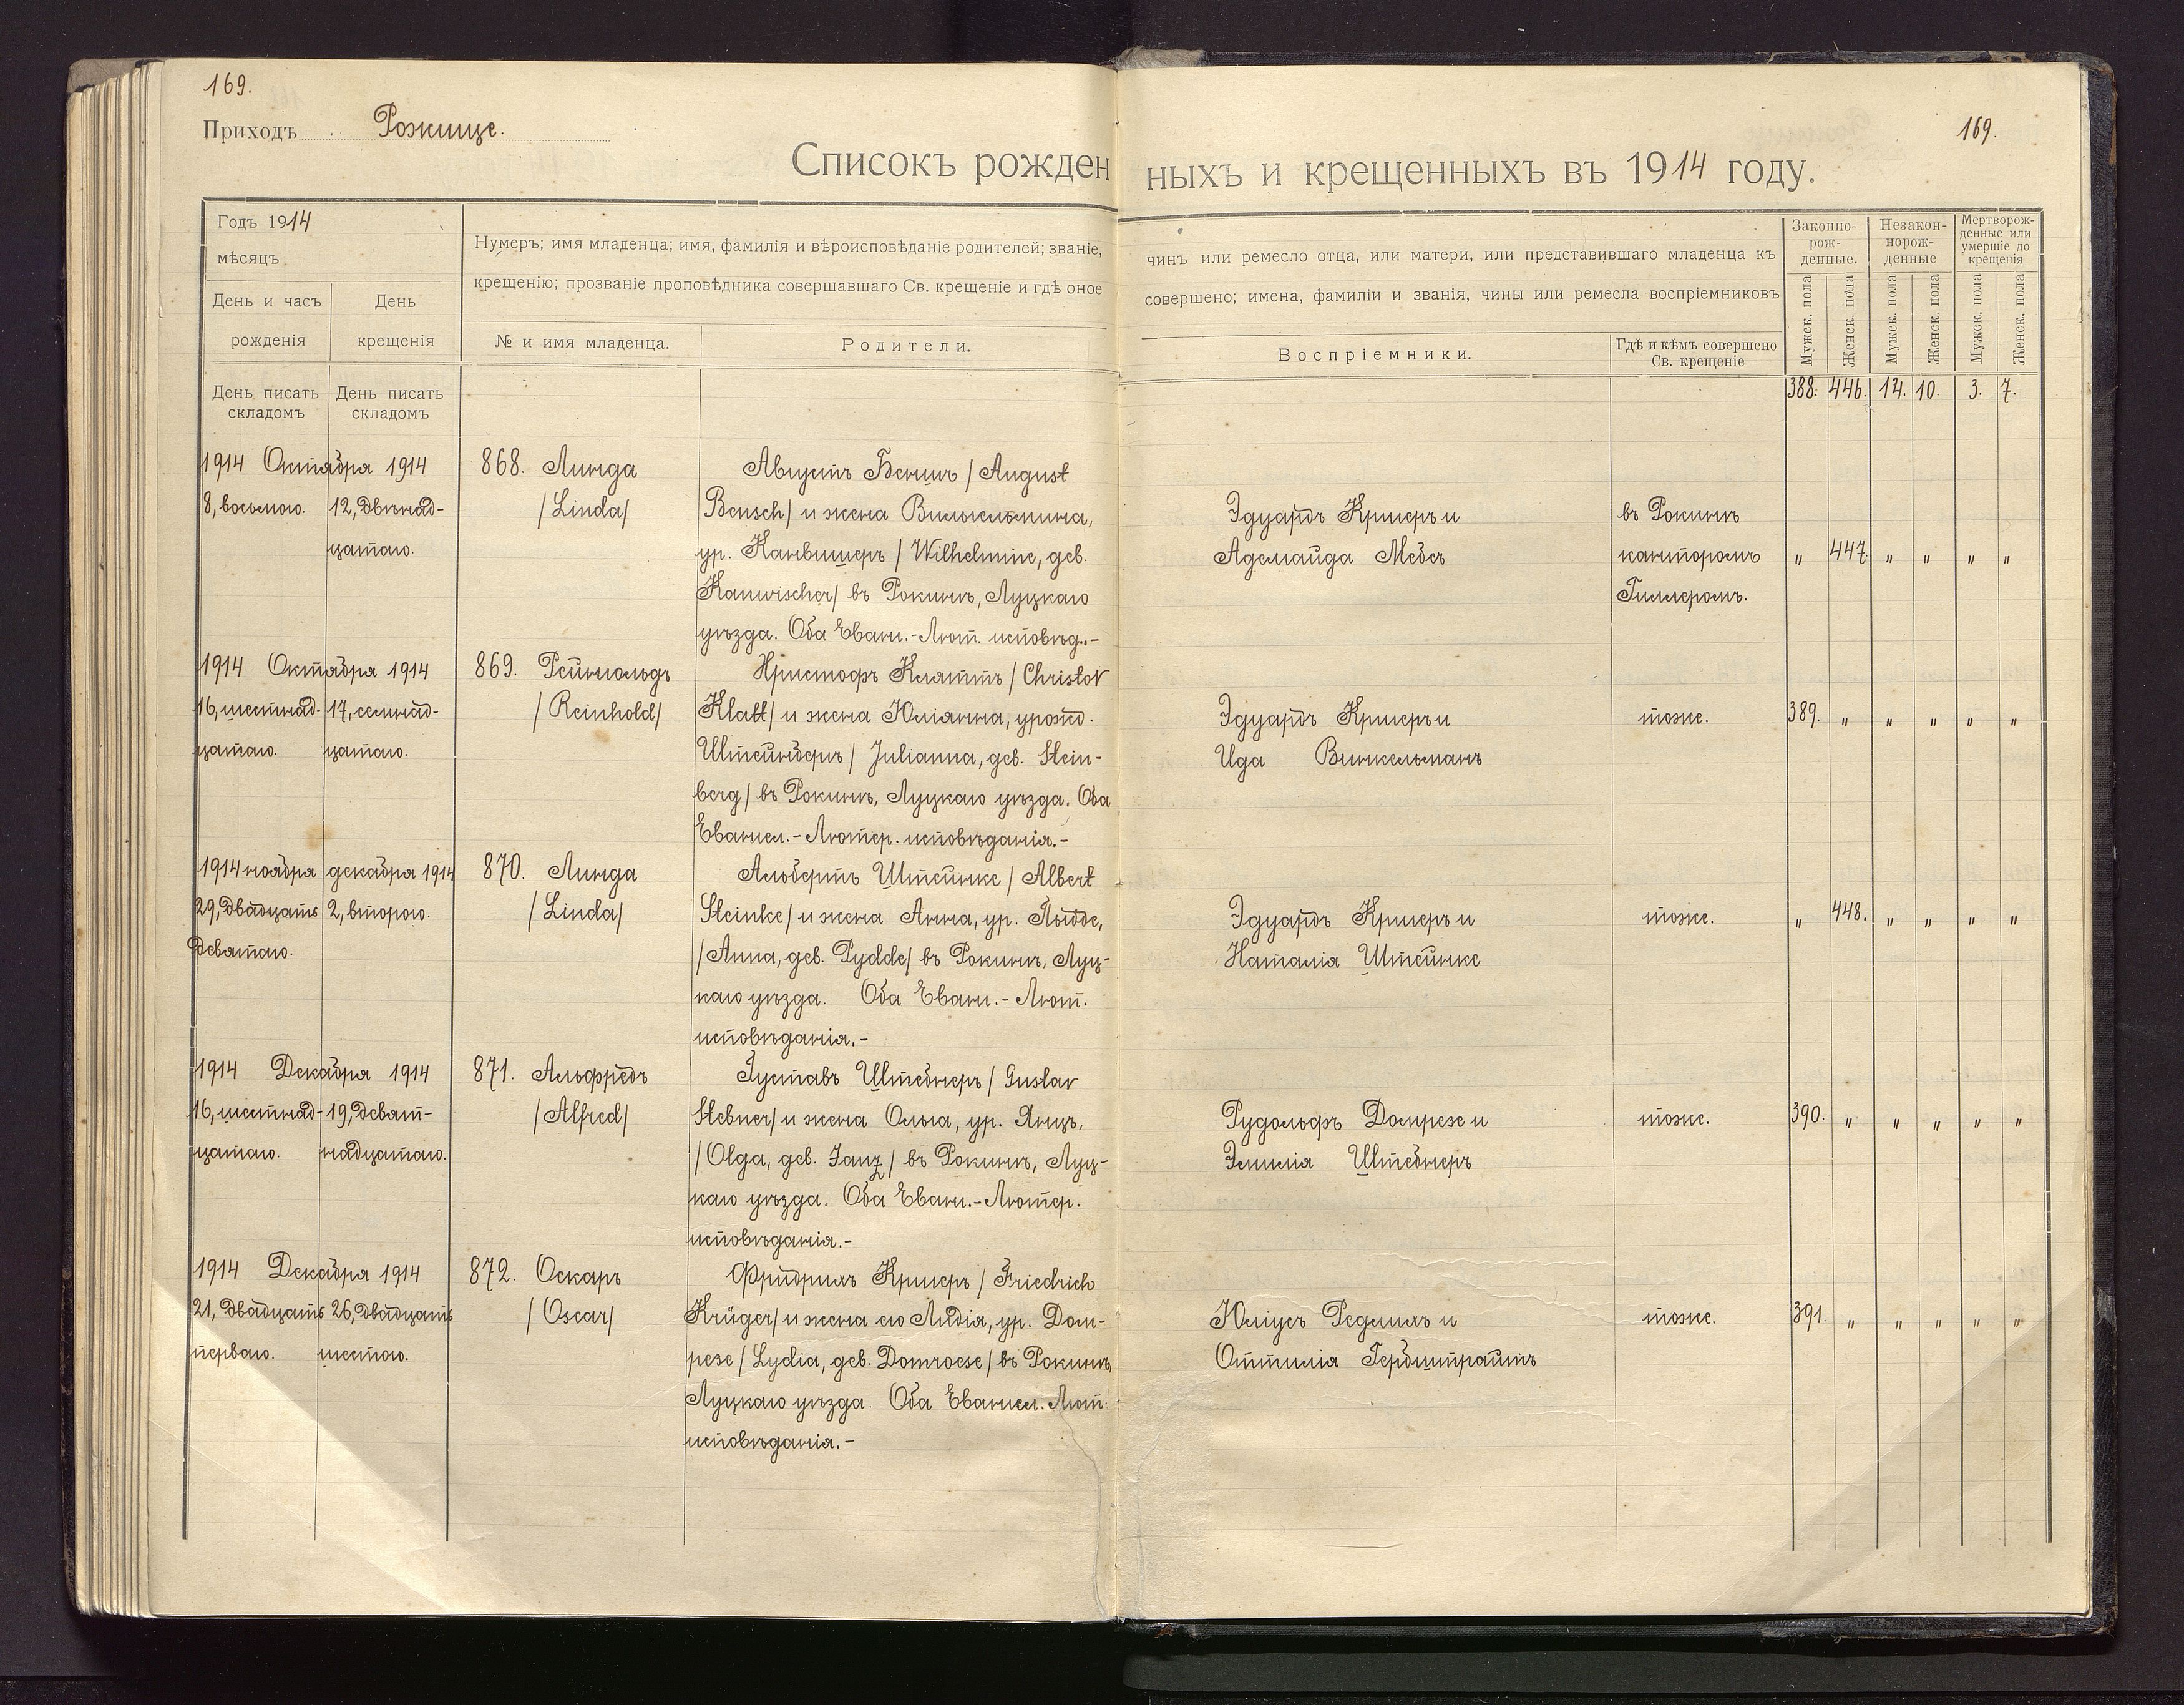 169.
Приходъ Рожище.
169.
Списокъ рожденныхъ и крещенныхъ въ 1914 году.
Годъ 1914
мѣсяцъ
День и часъ рожденія
День крещенія
Нумеръ; имя младенца; имя, фамилія и вѣроисповѣданіе родителей; званіе, чинъ или ремесло отца, или матери, или представившаго младенца къ
крещенію; прозваніе проповѣдника совершавшаго Св. крещеніе и гдѣ оное совершено; имена, фамиліи и званія, чины или ремесла воспріемниковъ
№ и имя младенца.
Родители.
Воспріемники.
Гдѣ и кѣмъ совершено
Св. крещеніе
Законно-
рож-
денные.
Незакон-
норож-
денные
Мертворож-
денные или
умершіе до
крещенія
Мужск. пола
Женск. пола
Мужск. пола
Женск. пола
Мужск. пола
Женск. пола
День писать
складомъ
День писать
складомъ
388. 446. 14. 10. 3. 7.
1914 Октября 1914
8, восьмого.
12, двѣнад-
цатаго.
868. Линда
/Linda/
Августъ Беншъ / August
Bensch/ и жена Вильгельмина,
ур. Канвишеръ / Wilhelmine, geb.
Kanwischer/ въ Рокинѣ, Луцкаго
уѣзда. Оба Еванг.-Лют. исповѣд.-
Эдуардъ Кригеръ и
Аделаида Мебсъ
въ Рокинѣ
канторомъ
Гиллеромъ.
" 447. " " " "
1914 Октября 1914
16, шестнад-
цатаго.
17, семнад-
цатаго.
869. Рейнгольдъ
/Reinhold/
Христофъ Клаттъ / Christof
Klatt/ и жена Юліанна, урожд.
Штейнбергъ / Julianna, geb. Stein-
berg/ въ Рокинѣ, Луцкаго уѣзда. Оба
Евангел.-Лютер. исповѣданія.-
Эдуардъ Кригеръ и
Ида Винкельманъ
тоже.
389. " " " " "
1914 ноября
29, двадцать
девятаго.
декабря 1914
2, второго.
870. Линда
/Linda/
Альбертъ Штейнке / Albert
Steinke/ и жена Анна, ур. Пыдде,
/Anna, geb. Pydde/ въ Рокинѣ, Луц-
каго уѣзда. Оба Еванг.-Лют.
исповѣданія.-
Эдуардъ Кригеръ и
Наталія Штейнке
тоже.
" 448. " " " "
1914 Декабря 1914
16, шестнад-
цатаго.
19, девят-
надцатаго.
871. Альфредъ
/Alfred/
Густавъ Штебнеръ / Gustav
Stebner/ и жена Ольга, ур. Янцъ,
/Olga, geb. Janz/ въ Рокинѣ, Луц-
каго уѣзда. Оба Еванг.-Лютер.
исповѣданія.-
Рудольфъ Домрезе и
Эмилія Штебнеръ
тоже.
390. " " " " "
1914 Декабря 1914
21, двадцать
перваго.
26, двадцать
шестого.
872. Оскаръ
/Oscar/
Фридрихъ Кригеръ / Friedrich
Krüger/ и жена его Лидія, ур. Дом-
резе / Lydia, geb. Domroese/ въ Рокинѣ
Луцкаго уѣзда. Оба Евангел. Лют.
исповѣданія.-
Юліусъ Редлихъ и
Оттилія Гербштрайтъ
тоже.
391. " " " " "